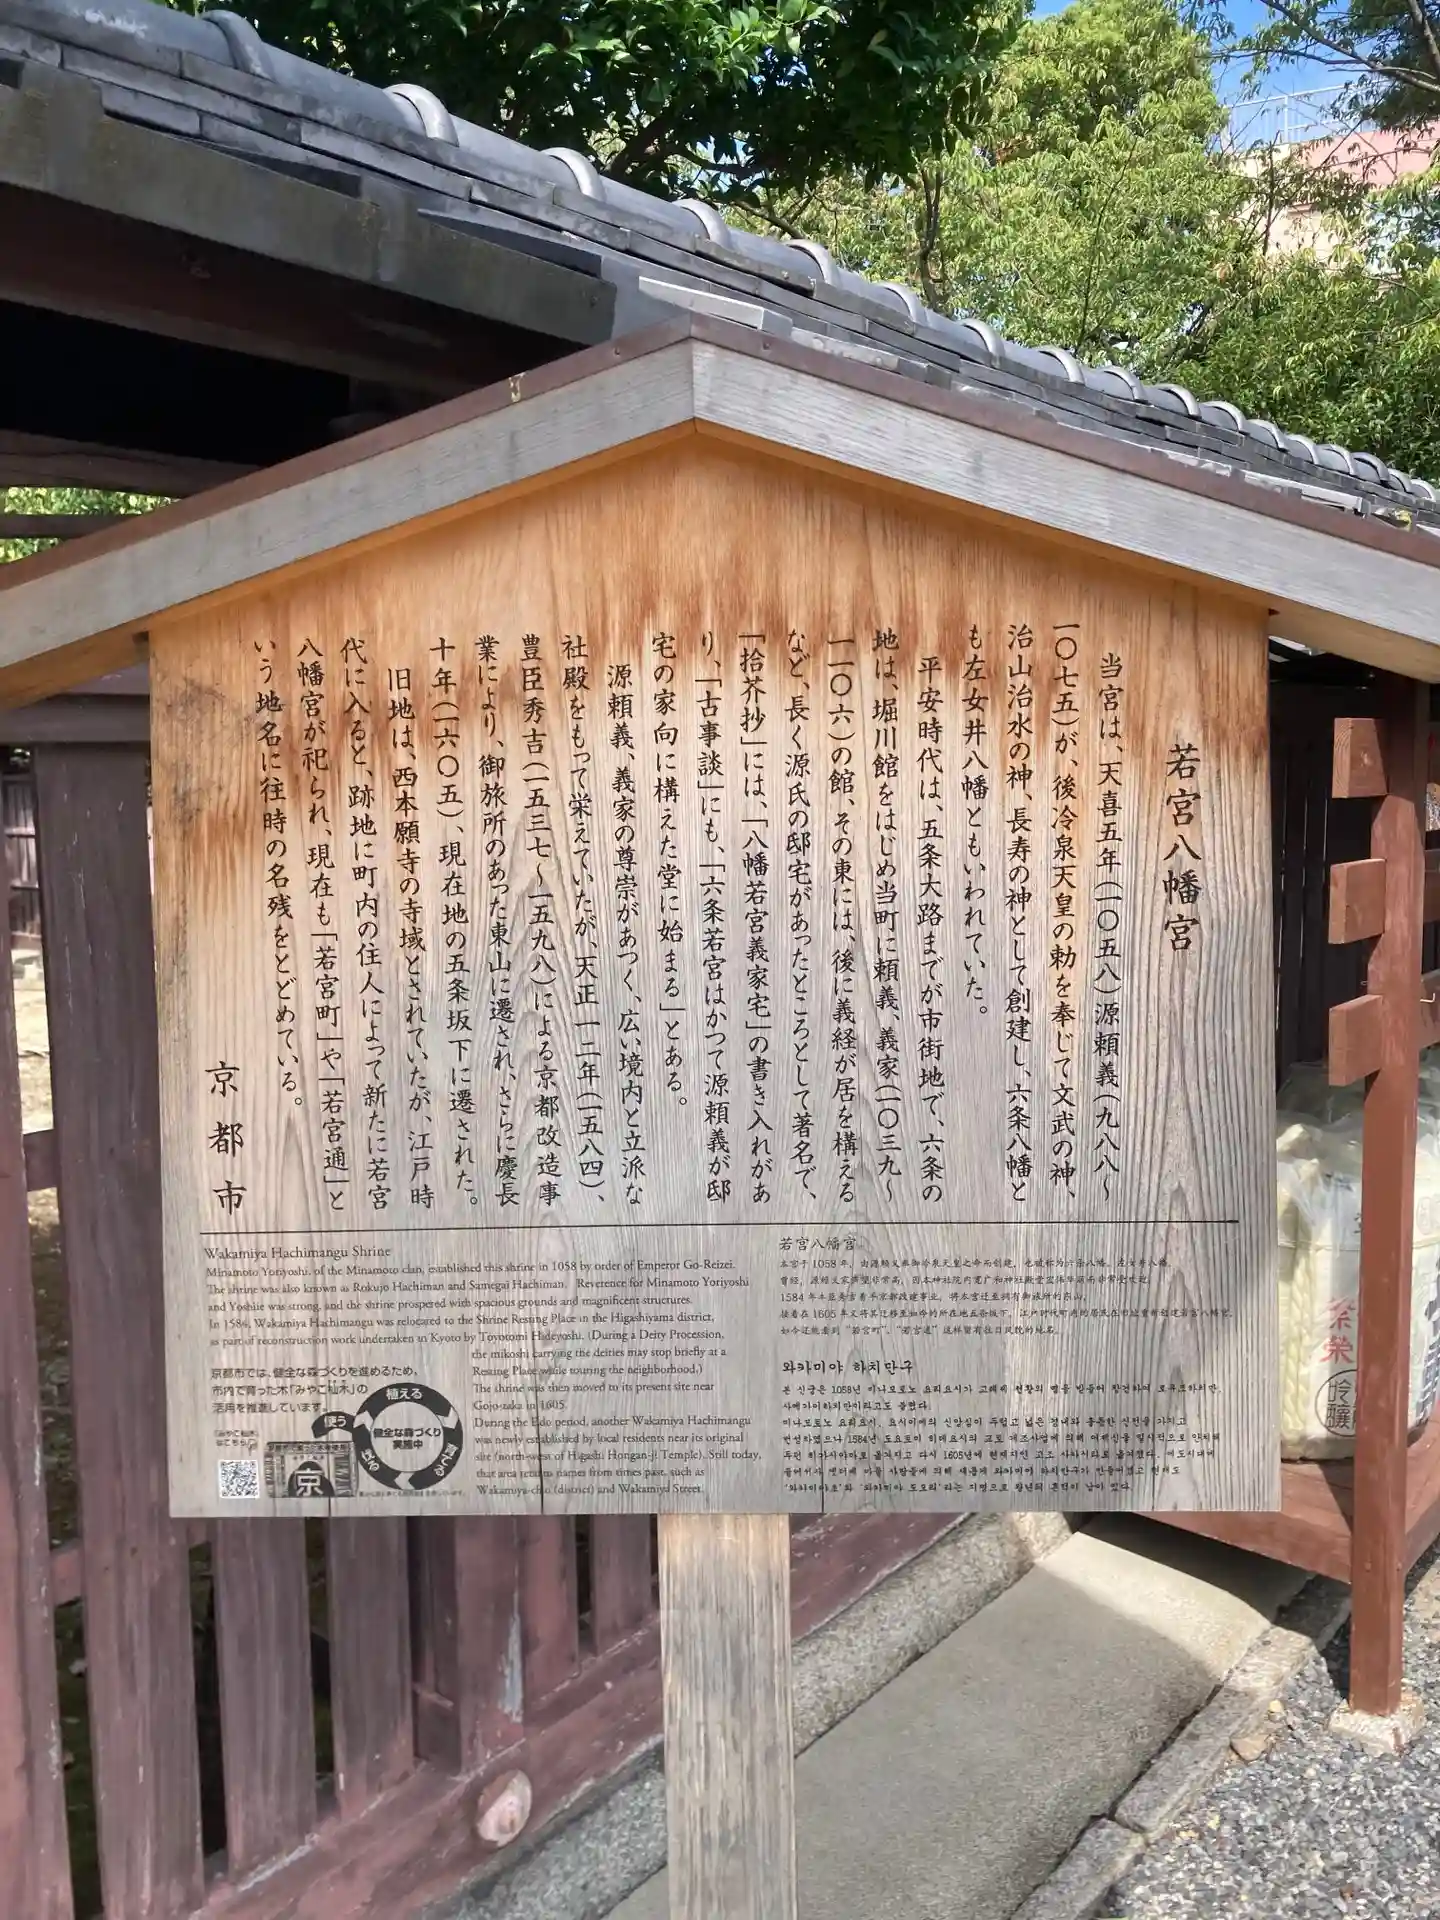 若宮八幡宮
当宮は、天喜五年(一〇五八)源頼義(九八八〜
一〇七五)が、後冷泉天皇の勅を奉じて文武の神、
治山治水の神、長寿の神として創建し、六条八幡と
も左女井八幡ともいわれていた。
平安時代は、五条大路までが市街地で、六条の
地は、堀川館をはじめ当町に頼義、義家(一〇三九〜
一一〇六)の館、その東には、後に義経が居を構える
など、長く源氏の邸宅があったところとして著名で、
「拾芥抄」には、「八幡若宮義家宅」の書き入れがあ
り、「古事談」にも、「六条若宮はかつて源頼義が邸
宅の家向に構えた堂に始まる」とある。
源頼義、義家の尊崇があつく、広い境内と立派な
社殿をもって栄えていたが、天正一二年(一五八四)、
豊臣秀吉(一五三七〜一五九八)による京都改造事
業により、御旅所のあった東山に遷され、さらに慶長
十年(一六〇五)、現在地の五条坂下に遷された。
旧地は、西本願寺の寺域とされていたが、江戸時
代に入ると、跡地に町内の住人によって新たに若宮
八幡宮が祀られ、現在も「若宮町」や「若宮通」と
いう地名に往時の名残をとどめている。
京都市
Wakamiya Hachimangu Shrine
Minamoto Yoriyoshi, of the Minamoto clan, established this shrine in 1058 by order of Emperor Go-Reizei.
The shrine was also known as Rokujo Hachiman and Samegai Hachiman. Reverence for Minamoto Yoriyoshi
and Yoshiie was strong, and the shrine prospered with spacious grounds and magnificent structures.
In 1584, Wakamiya Hachimangu was relocated to the Shrine Resting Place in the Higashiyama district,
as part of reconstruction work undertaken in Kyoto by Toyotomi Hideyoshi. (During a Deity Procession,
the mikoshi carrying the deities may stop briefly at a
Resting Place while touring the neighborhood.)
The shrine was then moved to its present site near
Gojo-zaka in 1605.
During the Edo period, another Wakamiya Hachimangu
was newly established by local residents near its original
site (north-west of Higashi Hongan-ji Temple). Still today,
that area retains names from times past, such as
Wakamiya-cho (district) and Wakamiya Street.
京都市では、健全な森づくりを進めるため、
市内で育った木「みやこ杣木」の
活用を推進しています。
「みやこ杣木」
はこちら
植える
育てる
使う
健全な森づくり
実施中
京
若宫八幡宫
本宫于1058年，由源赖义奉御冷泉天皇之命而创建，也被称为六条八幡、左女井八幡。
1584年丰臣秀吉着手京都改建事业，将本宫迁至拥有御旅所的东山，
接着在1605年又将其迁移至如今的所在地五条坂下。江户时代町内的居民在旧址重新创建若宫八幡宫。
如今还能看到“若宫町”、“若宫通”这样留有往日风貌的地名。
와카미야 하치만구
본 신궁은 1058년 미나모토노 요리요시가
미나모토노 요리요시, 요시이에의 신앙심이 두텁고 넓은 경내와 훌륭한 신전을 가지고
번성하였으나 1584년 도요토미 히데요시의 교토 개조사업에 의해
다시 1605년에 현재지인 고조
'와카미야초'와 '와카미야 도오리'라는 지명으로 왕년의 흔적이 남아 있다.
繁栄
吟醸